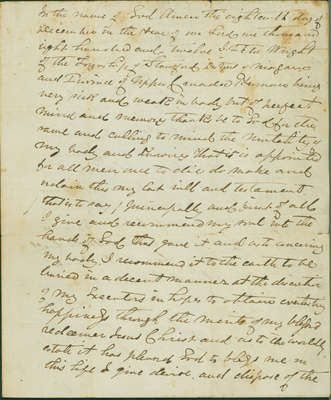 In the name of God Amen the eighteen th day of
December in the Year of our Lord one thousand
eight hundred and twelve I Wright
of the Township of Stamford District of Niagara
and Province of Upper Canada being
very sick and weak in body but of perfect
mind and memory thanks be to God for the
same and calling to mind the mortality of
my body and knowing that it is appointed
for all men once to die do make and
ordain this my last will and testament
that is to say principally and first of all
I give and recommend my soul into the
hands of God that gave it and as concerning
my body I recommend it to the earth to be
buried in a decent manner at the discretion
of my Executors in hopes to obtain everlasting
happiness through the merits of my blessed
redeemer Jesus Christ and as to the worldly
estate it has pleased God to bless me in
this life I give devise and dispose of the